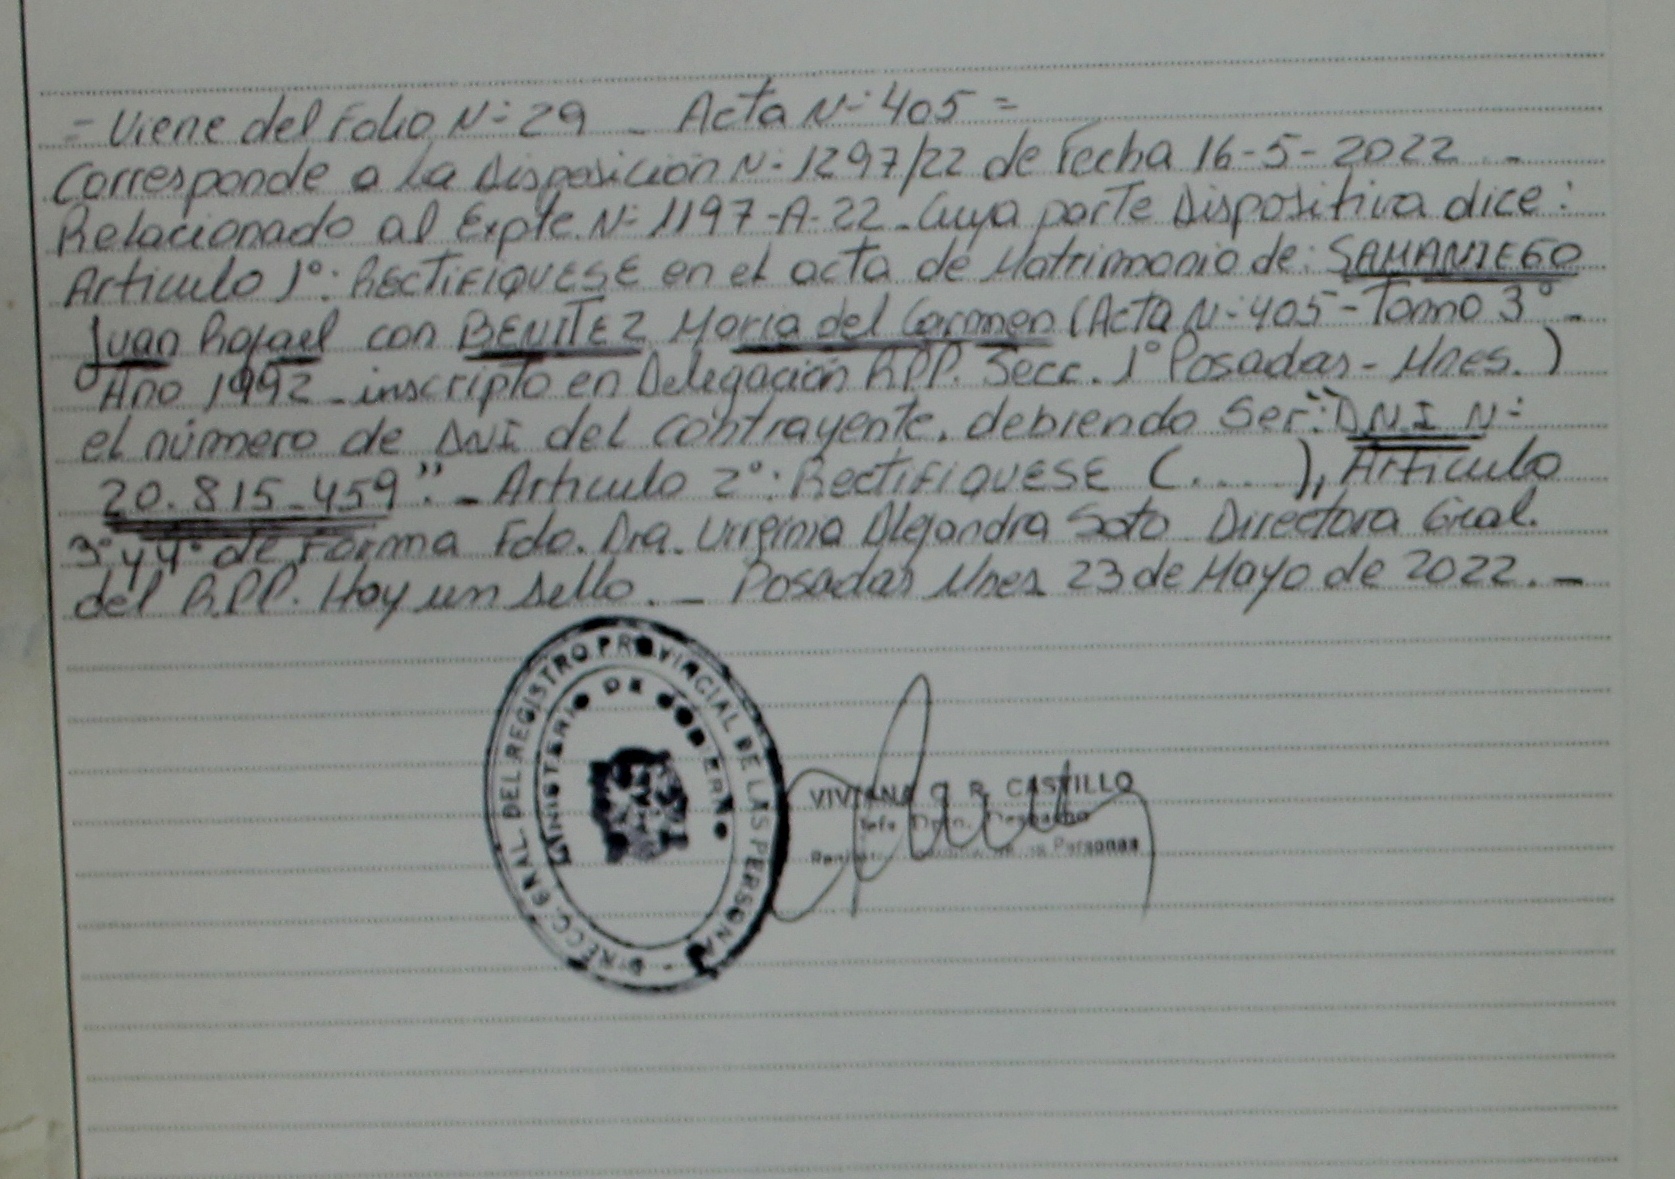 = Viene del Folio N:29 - Acta N:405 =
Corresponde a la Disposición N: 1297/22 de Fecha 16-5-2022 --
Relacionado al Expte. N: 1197-A-22 - Cuya parte Dispositiva dice:
Articulo 1°: RECTIFIQUESE en el acta de Matrimonio de: SAMANIEGO
Juan Rafael con BENITEZ Maria del Carmen (Acta N:405 - Tomo 3° -
Año 1992 - inscripto en Delegación RPP. Secc. 1° Posadas - Mnes.)
el número de DNI del contrayente, debiendo Ser: "D.N.I N:
20.815.459". - Articulo 2°: RectiFIQUESE (....), Articulo
3° y 4° de Forma Fdo. Dra. Virginia Alejandra Soto Directora Gral.
del R.P.P. Hay un sello. - Posadas Mnes 23 de Mayo de 2022. -
DIRECC. GRAL. DEL REGISTRO PROVINCIAL DE LAS PERSONAS
MINISTERIO DE GOBIERNO
VIVIANA G. R. CASTILLO
Jefe Dpto. Despacho
de las Personas